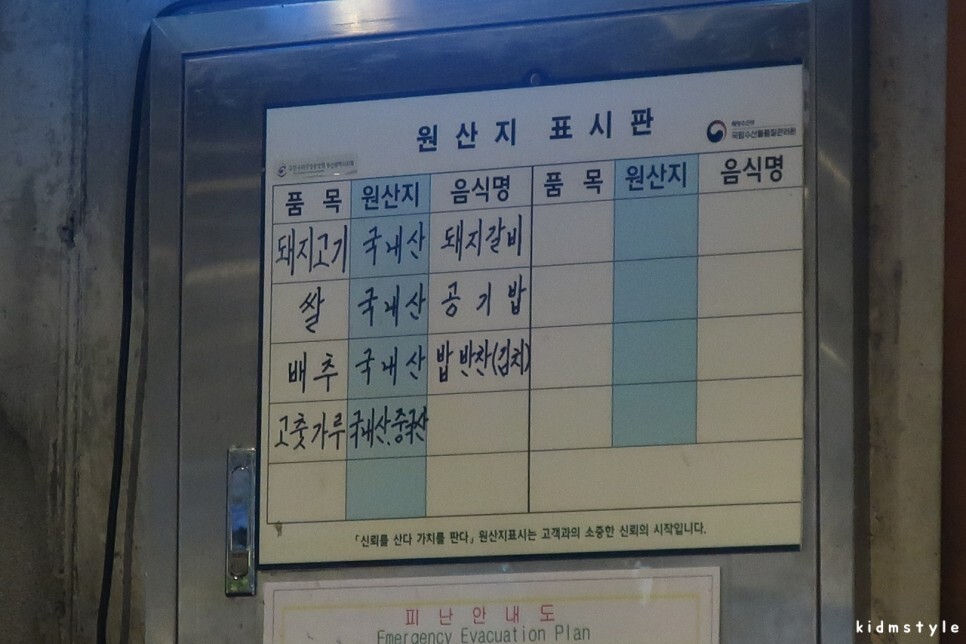 원산지 표시판
국립수산물품질관리원
품 목 원산지 음식명 품 목 원산지 음식명
돼지고기 국내산 돼지갈비
쌀 국내산 공기밥
배추 국내산 밥반찬(김치)
고춧가루 국내산.중국산
「신뢰를 산다 가치를 판다」 원산지표시는 고객과의 소중한 신뢰의 시작입니다.
피난안내도
Emergency Evacuation Plan
kidmstyle